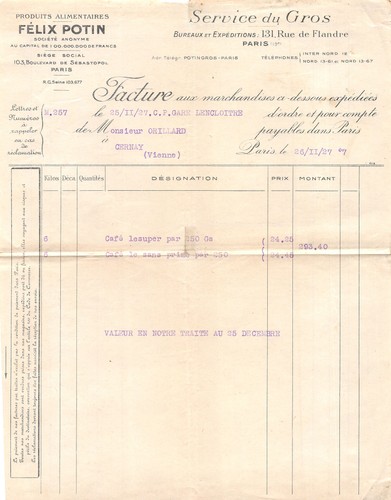 PRODUITS ALIMENTAIRES
FÉLIX POTIN
SOCIÉTÉ ANONYME
AU CAPITAL DE 100.000.000 DE FRANCS
SIÈGE SOCIAL
103, BOULEVARD DE SÉBASTOPOL
PARIS
R.C. Seine 103.677
Service du Gros
BUREAUX ET EXPÉDITIONS: 131, Rue de Flandre
PARIS (19e)
Adr. Télégr. POTINGROS-PARIS
TÉLÉPHONES
INTER NORD 16
NORD 13-61 à NORD 13-67
Facture aux marchandises ci-dessous expédiées
Lettres et
Numéros à
rappeler
en cas
de réclamation
M.257
le 25/11/27. C.P. GARE LENCLOITRE
d'ordre et pour compte
de Monsieur ORILLARD
payables dans Paris
à CERNAY
(Vienne)
Paris le 26/11/27
Kilos Déca Quantités DÉSIGNATION PRIX MONTANT
6 Café lesuper par 250 Gs 24.25
393.40
6 Café le sans prime par 250 24.45
VALEUR EN NOTRE TRAITE AU 25 DECEMBRE